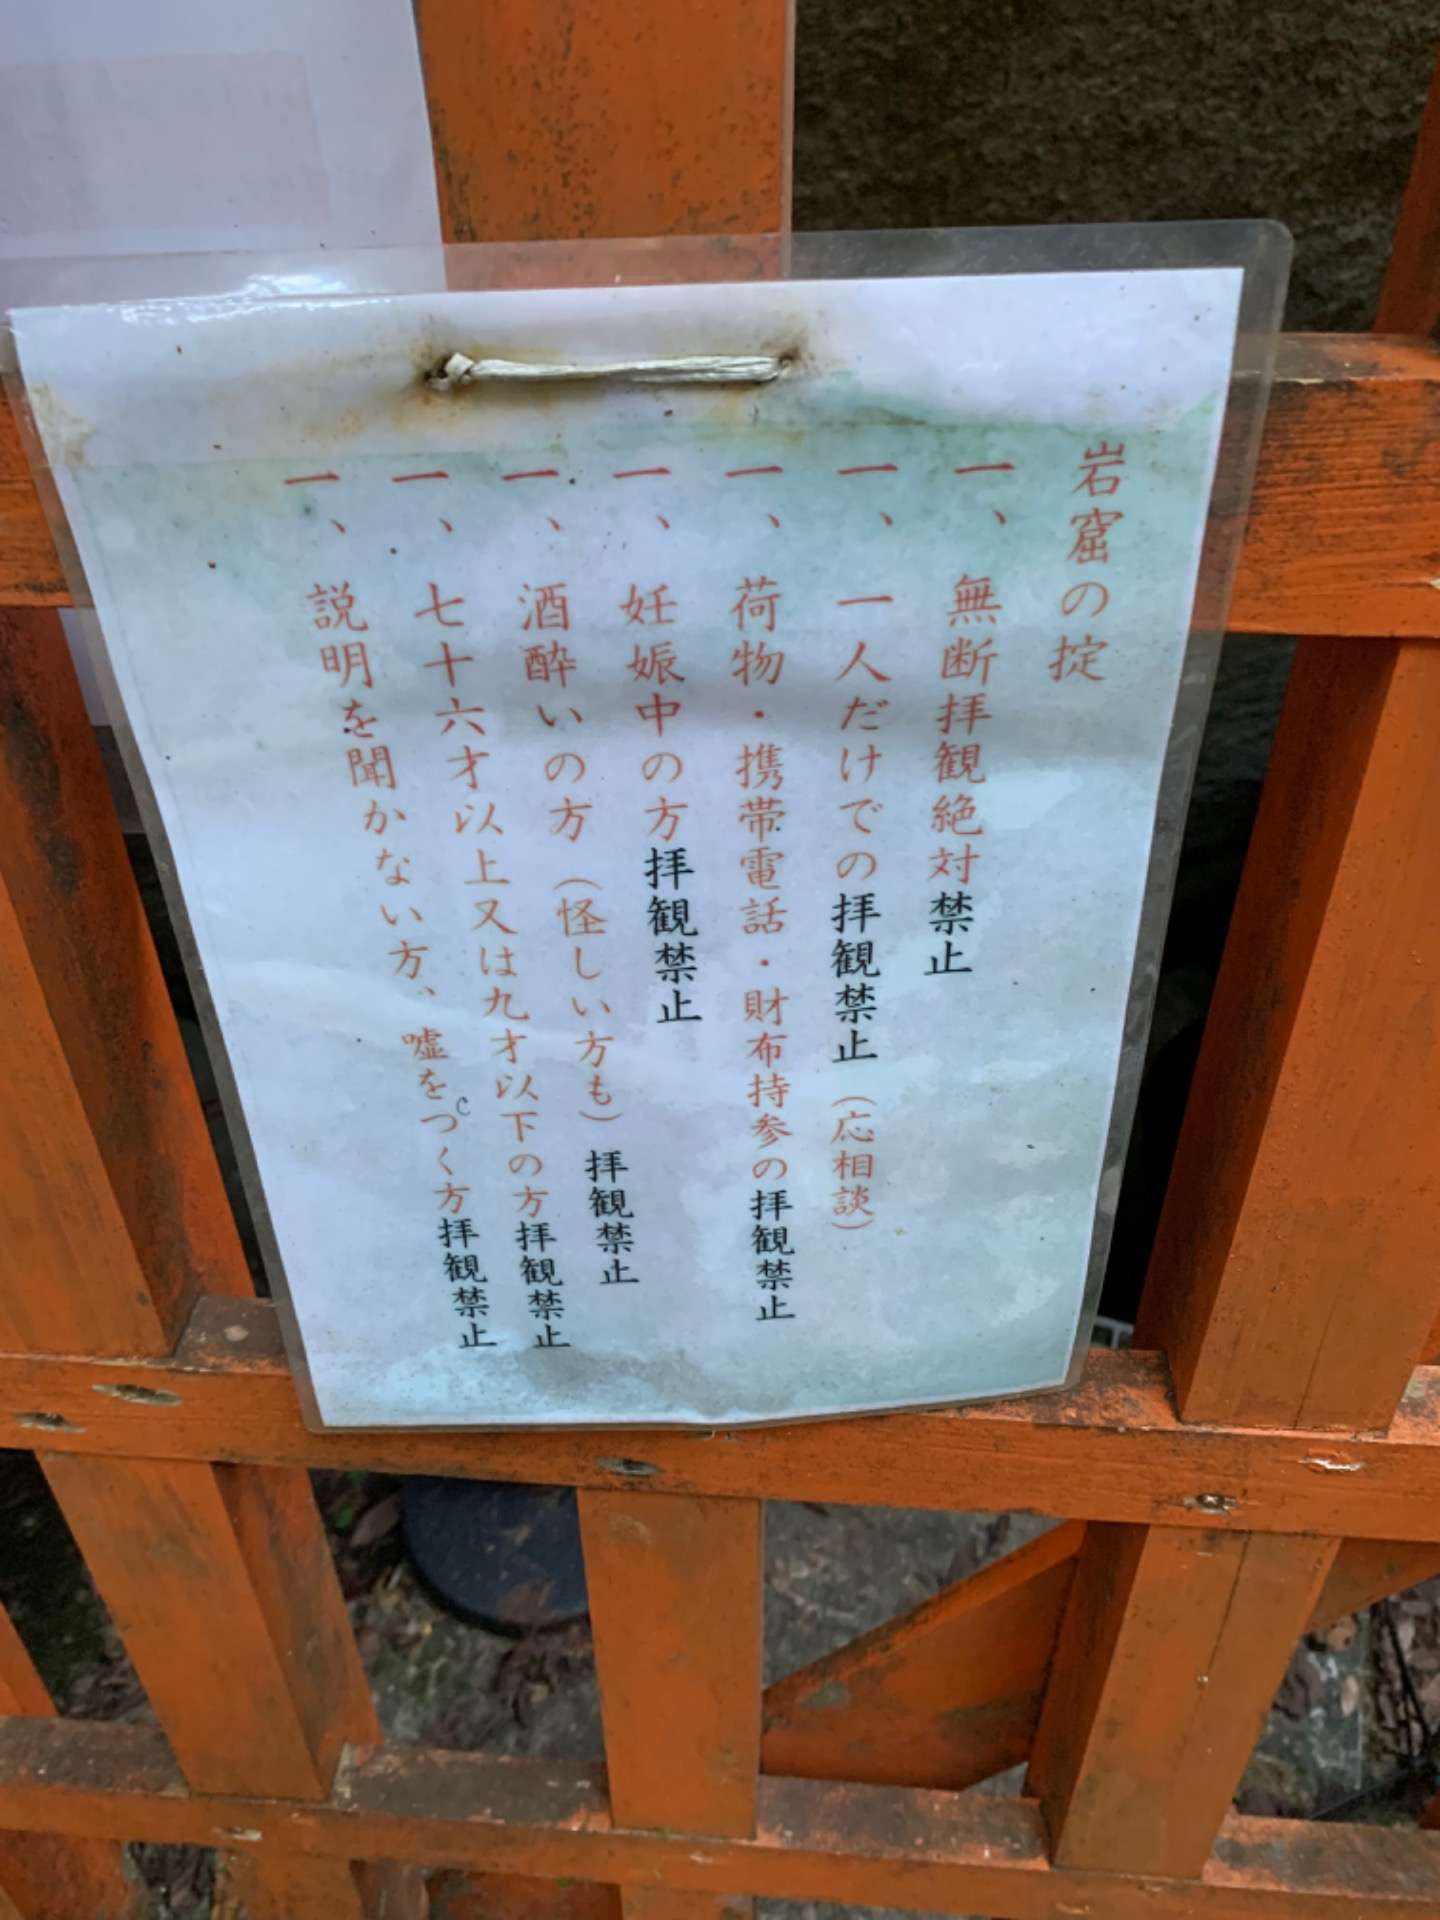 岩窟の掟
一、無断拝観絶対禁止
一、一人だけでの拝観禁止（応相談）
一、荷物・携帯電話・財布持参の拝観禁止
一、妊娠中の方拝観禁止
一、酒酔いの方（怪しい方も）拝観禁止
一、七十六才以上又は九才以下の方拝観禁止
一、説明を聞かない方、嘘をつく方拝観禁止